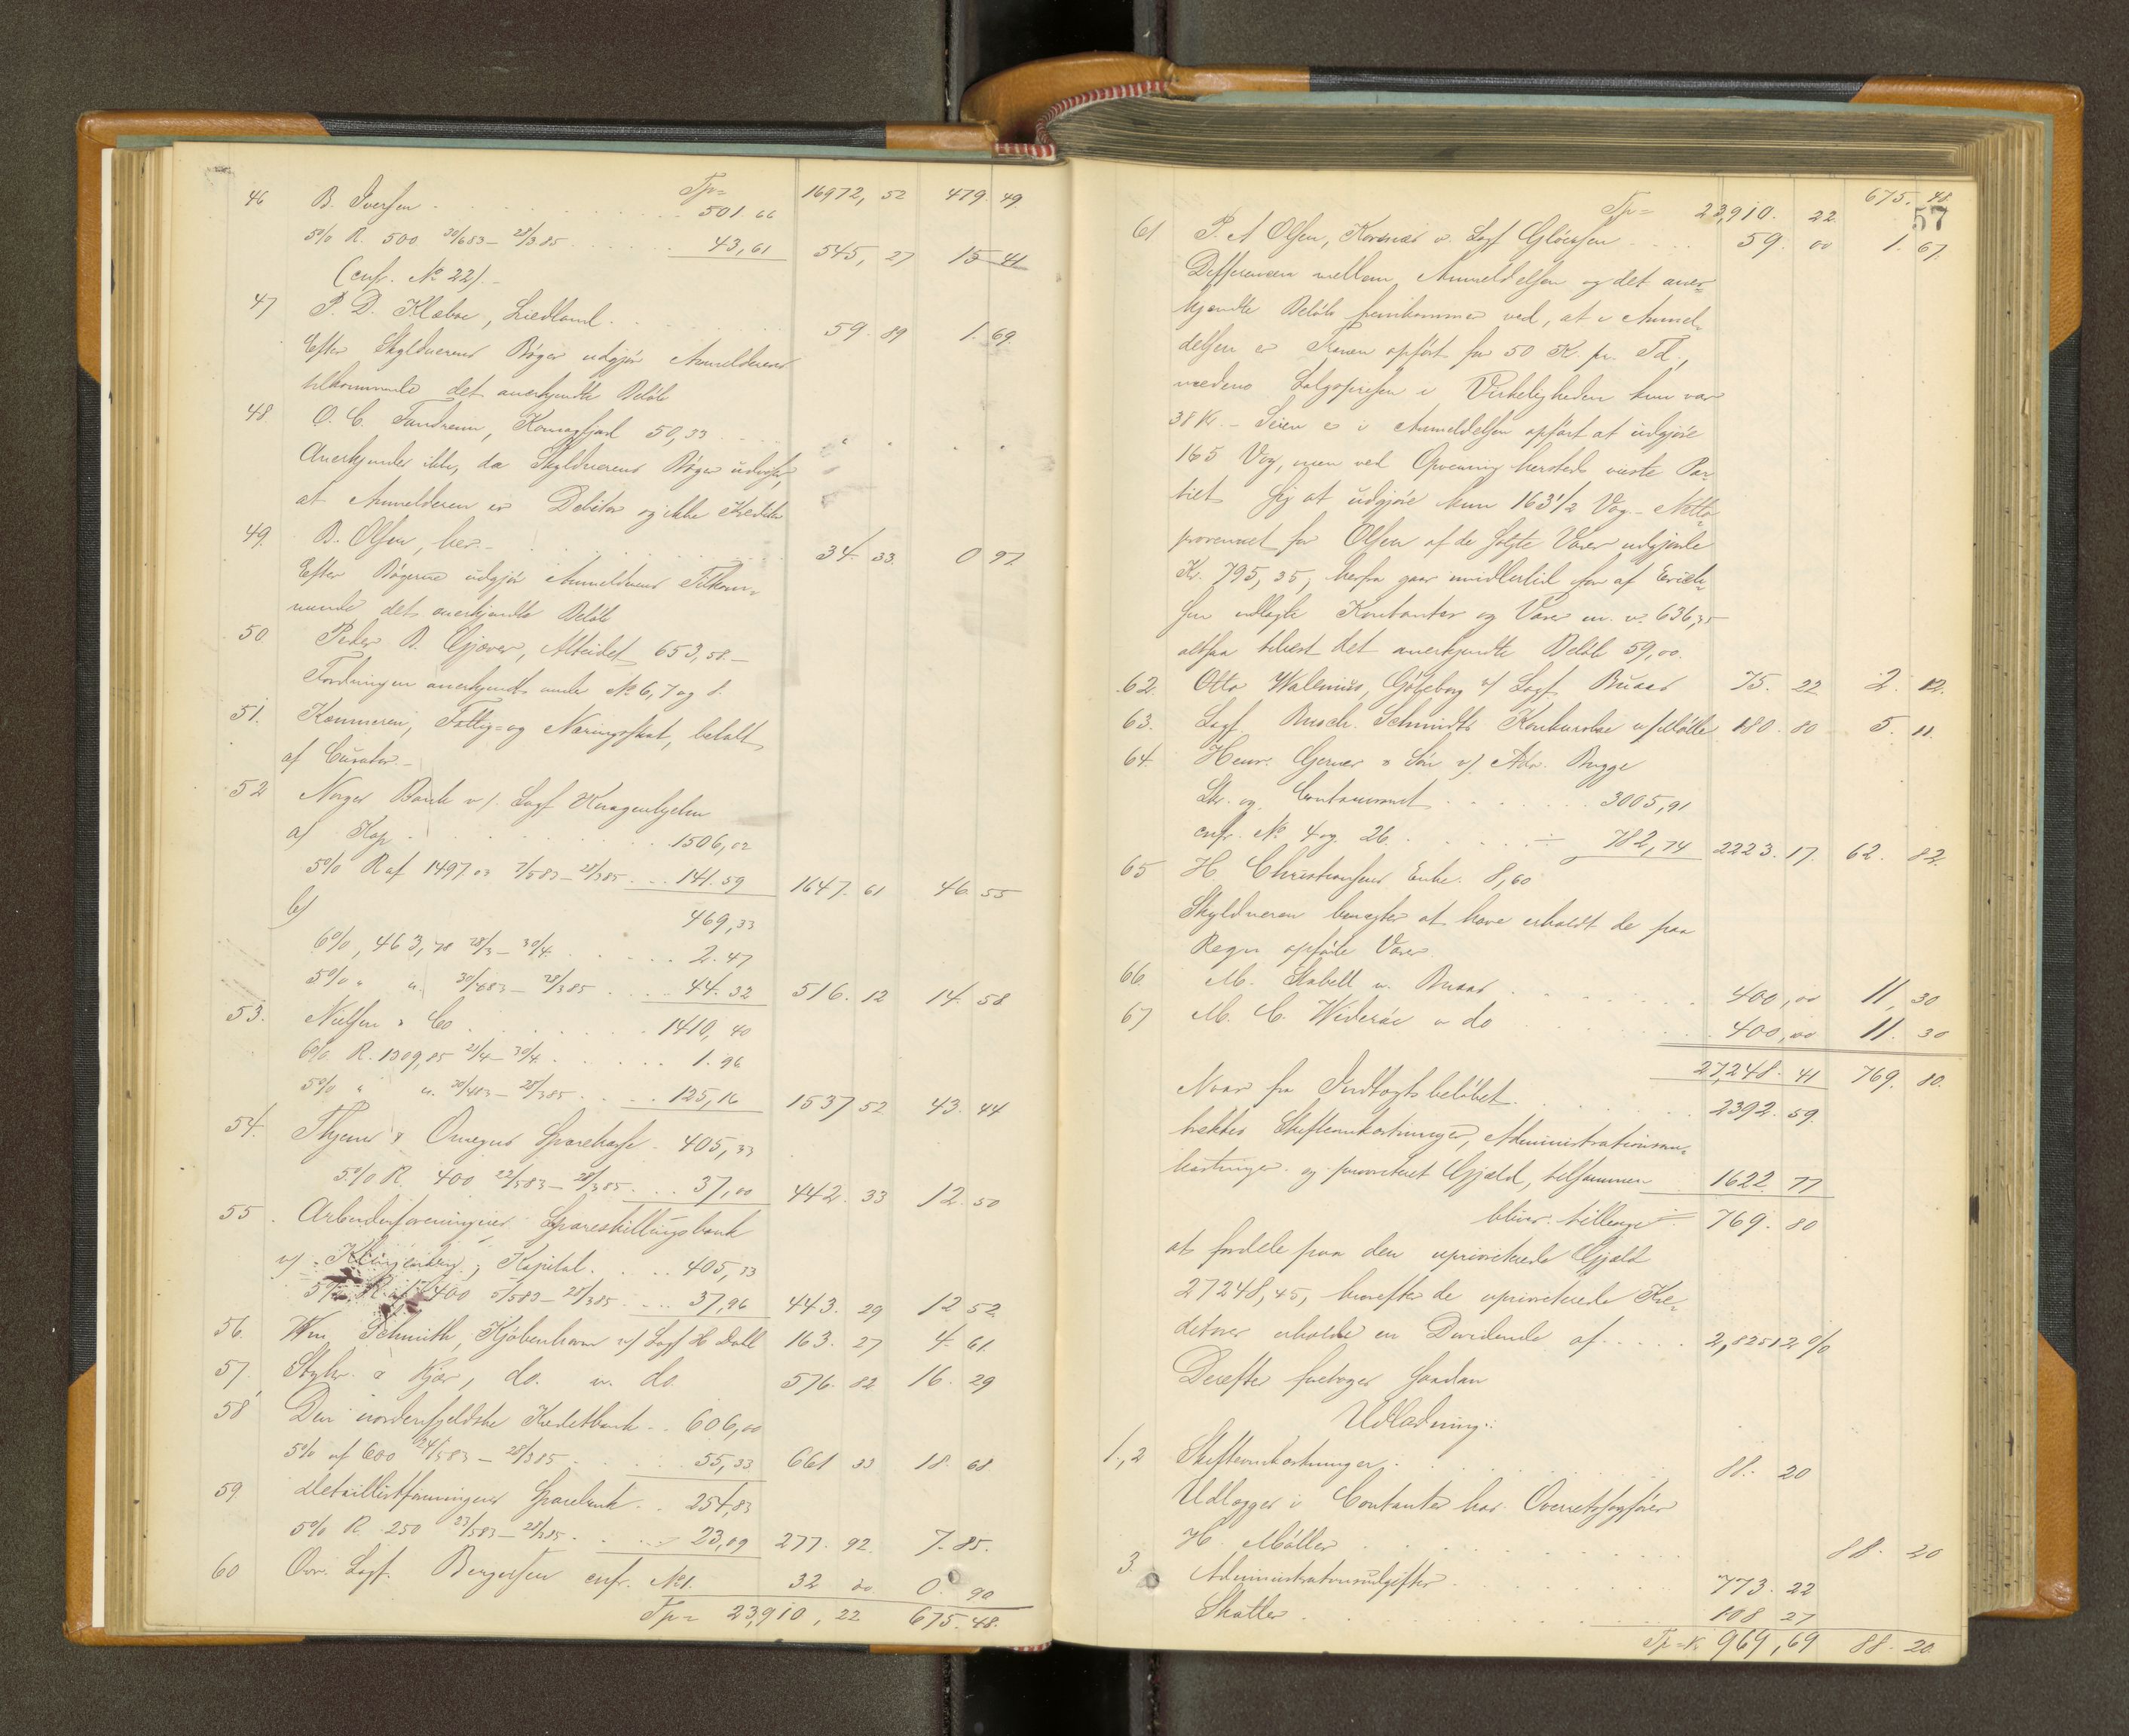 Tp= 16972, 52 479. 49.
46 B. Iversen . . . 501. 66
5% R. 500 30/6 83 – 28/3 85 . . . 43,61 545, 27 15 41
(cnfr. No 22). –
47 P. D. Klæboe, Liedland . . . 59. 89 1. 69.
Efter Skyldnerens Bøger udgjør Anmelderens
tilkommende det anerkjendte Beløb
48. O. C. Tandrenn, Komagfjord 50,33 . . .
Anerkjendes ikke, da Skyldnerens Bøger udviser,
at Anmelderen er Debitor og ikke Kreditor
49. B. Olsen, her. – . . . 34. 33. 0 97
Efter Bøgerne udgjør Anmelderens Tilkom-
mende det anerkjendte Beløb
50 Peder B. Gjæver, Alteidet 653,58. –
Fordringen anerkjendt under No 6, 7 og 8.
51. Kæmneren, Fattig- og Næringsskat, betalt
af Curator. –
52 Norges Bank v/. Sagf Knagenhjelm
a) Kap . . . 1506,02
5% R af 1497.03 7/5 83 – 28/3 85 . . . 141.59 1647. 61 46. 55
b) 469,33
6%, 463,78 28/3 – 30/4 . . . 2. 47
5% " " 30/4 83 – 28/3 85 . . . 44. 32 516. 12 14. 58
53. Nielsen & Co . . . 1410, 40
6% R. 1309,85 21/4 – 30/4 . . . 1. 96
5% " " 30/4 83 – 28/3 85 . . . 125,16 1537 52 43. 44
54. Thjems & Omegns Sparekasse . 405,33
5% R. 400 22/5 83 – 28/3 85 . . . 37,00 442. 33 12. 50
55. Arbeiderforeningens Spareskillingsbank
v/. Klingenberg; Kapital . . . 405,33
5% R. af 400 5/5 83 – 28/3 85 . . . 37,96 443. 29 12 52.
56. Wm Schmith, Kjøbenhavn v/ Sagf H Dahl 163. 27 4. 61.
57. & Kjær, do. v. do. 576. 82 16. 29
58 Den nordenfjeldske Kreditbank . . 606,00
5% af 600 24/5 83 – 28/3 85 . . . 55,33 661 33 18. 68.
59 Detaillistforeningens Sparebank . . 254,83
5% R. 250 23/5 83 – 28/3 85 . . . 23,09 277. 92. 7. 85.
60 Ovr. Sagf. Bergersen cnfr. No 1. 32 00 0. 90
Tp= 23,910, 22 675. 48.
57
Tp= 23,910. 22 675. 48.
61 P. A Olsen, Korsnæs v. Sagf Gløersen . . . 59. 00 1. 67.
Differencen mellem Anmeldelsen og det aner-
kjendte Beløb fremkommer ved, at i Anmel-
delsen er Tranen opført for 50 K. pr. Td.,
medens Salgsprisen i Virkeligheden kun var
38 Kr. – Seien er i Anmeldelsen opført at udgjøre
165 Vog, men ved Opveining hersteds viiste Par-
tiet sig at udgjøre kun 163½ Vog. – Netto
provenuet for Olsen af de solgte Varer udgjorde
Kr. 795,35; herfra gaar imidlertid for af Erich-
sen udlagte Kontanter og Varer m. v. 636,35
altsaa tilrest det anerkjendte Beløb 59,00.
62. Otto Walenius, Gøteborg v/ Sagf Buaas 75. 22 2. 12.
63. Sagf Busch. Schmidts Konkursbo v/ Møller 180. 80 5. 11.
64. Henr. Gerner & Søn v/. Adv. Brygge
Skr. og Contracourant . . . 3005,91
cnfr. No 4 og 26 . . . ÷ 782,74 2223. 17. 62. 82.
65 H. Christiansens Enke. 8,60
Skyldneren benægter at have erholdt de paa
Regn opførte Varer
66. M. Stabell v. Buaas . . . 400,00 11, 30
67 M. C. Widerøe v do . . . 400,00 11. 30
27,248. 41 769. 80.
Naar fra Indtægtsbeløbet . . . 2392. 59.
trækkes Skifteomkostninger, Administrationsom-
kostninger og prioriteret Gjæld, tilsammen 1622. 77
bliver tillovers = 769. 80
at fordele paa den uprioriterede Gjæld
27248,45, hvorefter de uprioriterede Kre-
ditorer erholde en Dividende af . . . . 2,82512 %
Derefter foretoges saadan
Udlodning:
1., 2 Skifteomkostninger . . . 88. 20
Udlægges i Contanter hos Overretssagfører
H. Møller . . . 88. 20
3. Administrationsudgifter . . . 773. 22
Skatter . . . 108 27
Tp = Kr 969,69 88. 20.